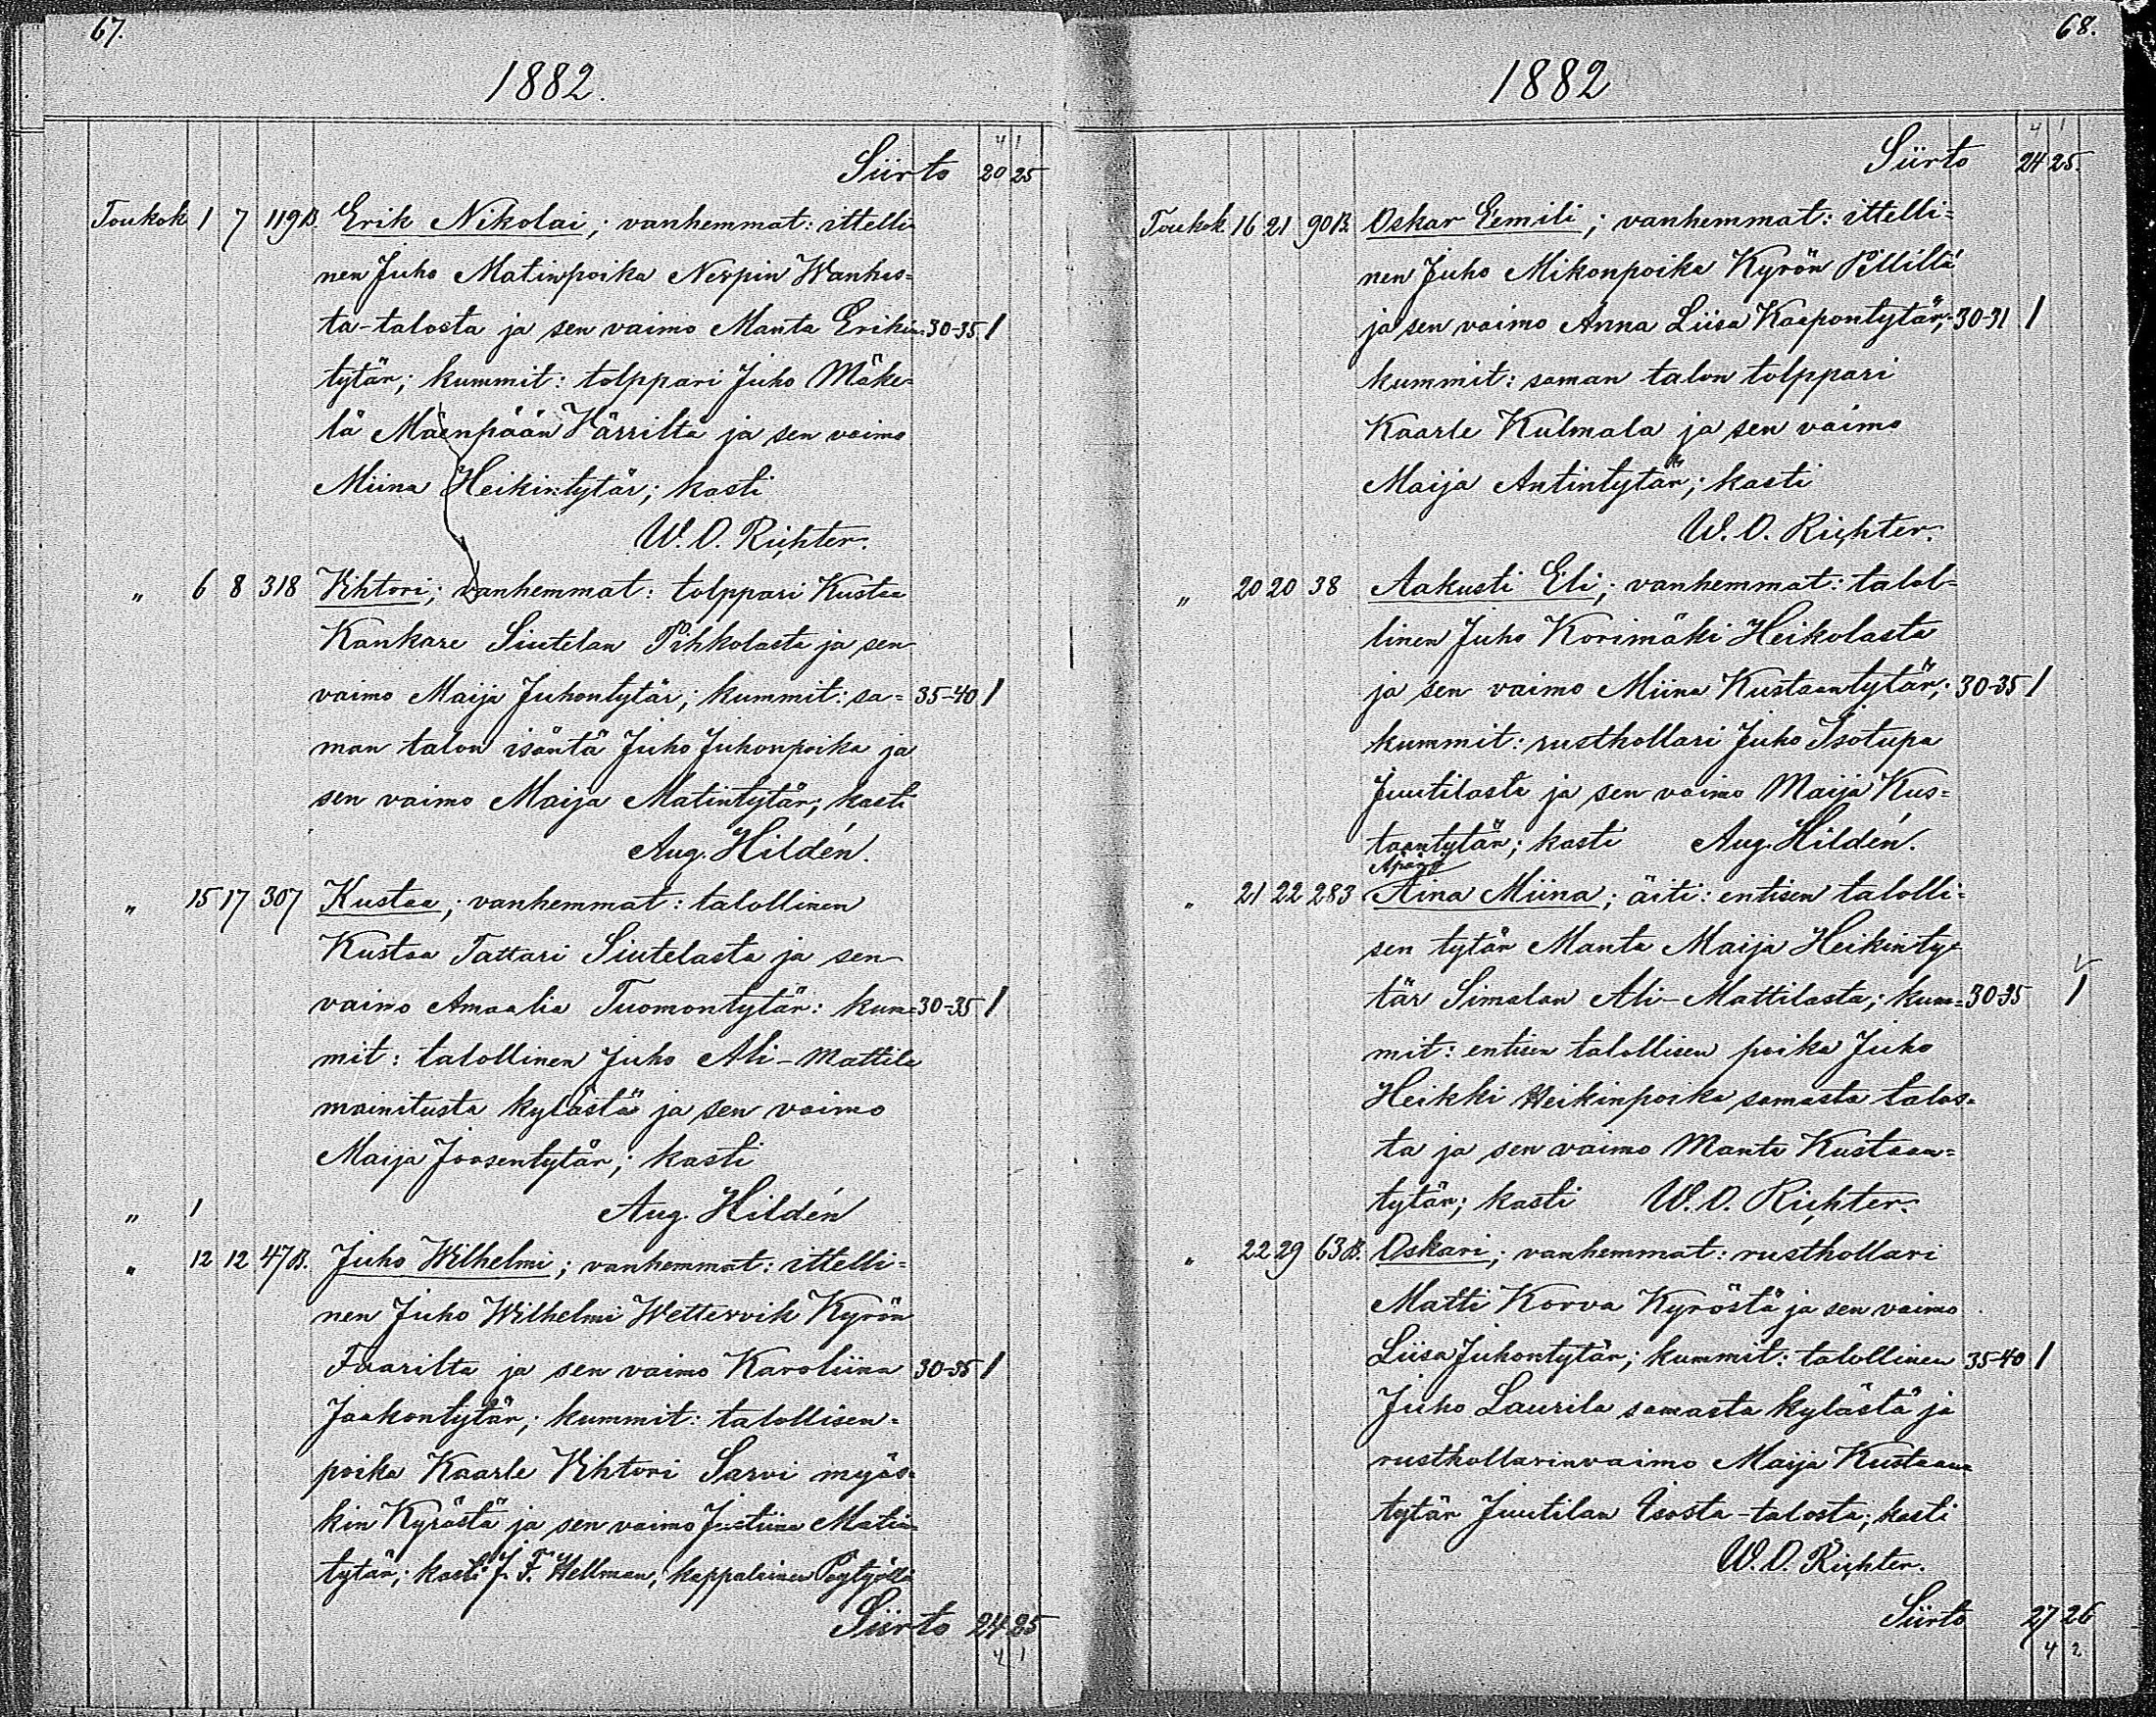 67.
1882.
4 1
Siirto 20 25
Toukok 1 7 119B. Erik Nikolai; vanhemmat: ittelli-
nen Juho Matinpoika Nerpin Wanhas-
ta-talosta ja sen vaimo Manta Erikin- 30-35 1
tytär; kummit: tolppari Juho Mäke-
lä Mäenpään Härriltä ja sen vaimo
Miina Heikintytär; kasti
W. O. Richter.
" 6 8 318 Vihtori; vanhemmat: tolppari Kustaa
Kankare Siutelan Pihkolasta ja sen
vaimo Maija Juhontytär; kummit: sa= 35-40 1
man talon isäntä Juho Juhonpoika ja
sen vaimo Maija Matintytär; kasti
Aug. Hildén.
" 15 17 307 Kustaa; vanhemmat: talollinen
Kustaa Tattari Siutelasta ja sen
vaimo Amaalia Tuomontytär: kum= 30-35 1
mit: talollinen Juho Ali-Mattila
mainitusta kylästä ja sen vaimo
Maija Joosentytär; kasti
" 1 Aug. Hildén
" 12 12 47B. Juho Wilhelmi; vanhemmat: ittelli=
nen Juho Wilhelmi Wettervik Kyrön
Faarilta ja sen vaimo Karoliina 30-35 1
Jaakontytär; kummit: talollisen=
poika Kaarle Vihtori Sarvi myös=
kin Kyröstä ja sen vaimo Justiina Matin=
tytär; kasti J. F. Hellman, kappalainen Pöytyällä
Siirto 24 25
4 1
68.
1882
4 1
Siirto 24 25.
Toukok 16 21 90B. Oskar Eemili; vanhemmat: ittelli=
nen Juho Mikonpoika Kyrön Pelliltä
ja sen vaimo Anna Liisa Kaapontytär; 30-31 1
kummit: saman talon tolppari
Kaarle Kulmala ja sen vaimo
Maija Antintytär; kasti
W. O. Richter.
" 20 20 38 Aakusti Eli; vanhemmat: talol=
linen Juho Korimäki Heikolasta
ja sen vaimo Miina Kustaantytär; 30-35 1
kummit: rusthollari Juho Isotupa
Juutilasta ja sen vaimo Maija Kus=
taantytär; kasti Aug. Hildén.
Äpärä
" 21 22 283 Aina Miina; äiti: entisen talolli=
sen tytär Manta Maija Heikinty=
tär Simalan Ali-Mattilasta; kum= 30-35 1
mit: entisen talollisen poika Juho
Heikki Heikinpoika samasta talos=
ta ja sen vaimo Manta Kustaan=
tytär; kasti W. O. Richter.
" 22 29 63B. Oskari; vanhemmat: rusthollari
Matti Korva Kyröstä ja sen vaimo
Liisa Juhontytär; kummit: talollinen 35-40 1
Juho Laurila samasta kylästä ja
rusthollarinvaimo Maija Kustaan=
tytär Juutilan Isosta-talosta; kasti
W. O. Richter.
Siirto 27 26
4 2